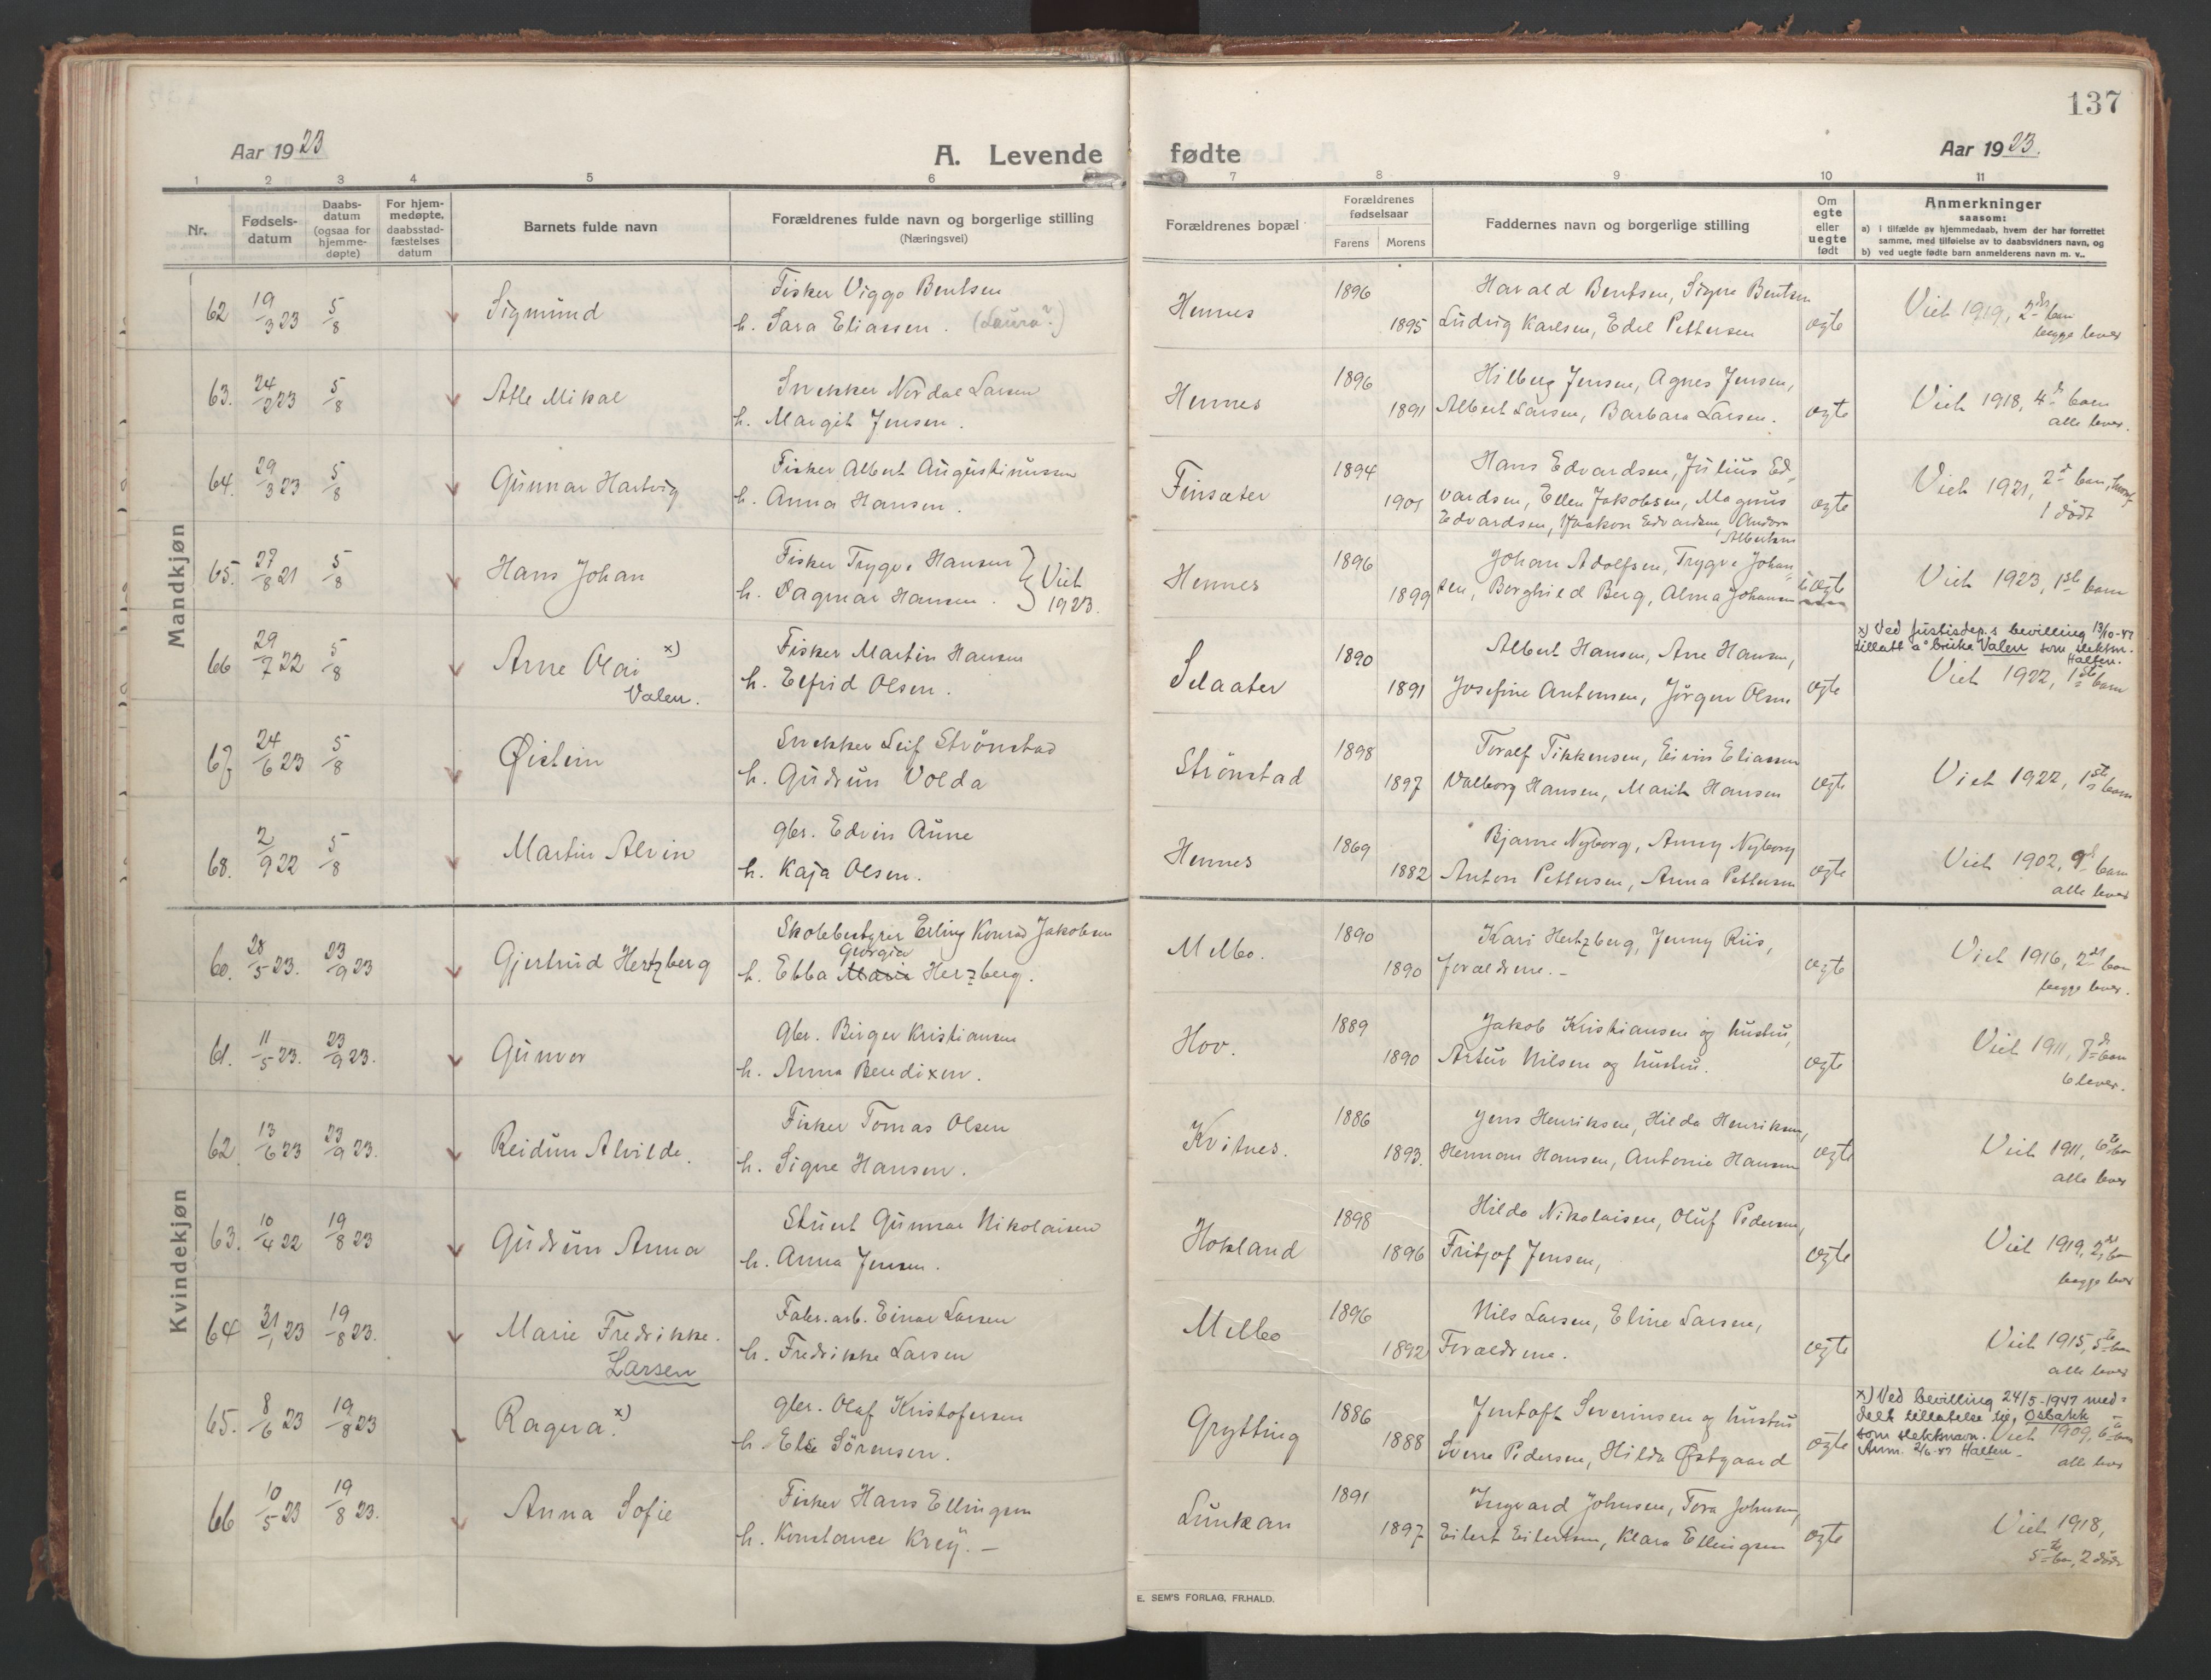 137
Aar 1923
A. Levende fødte
Aar 1923.
1 2 3 4 5 6 7 8 9 10 11
Nr.
Fødsels-
datum
Daabs-
datum
(ogsaa for
hjemme-
døpte)
For hjem-
medøpte,
daabsstad-
fæstelses
datum
Barnets fulde navn
Forældrenes fulde navn og borgerlige stilling
(Næringsvei)
Forældrenes bopæl
Forældrenes
fødselsaar
Farens Morens
Faddernes navn og borgerlige stilling
Om
egte
eller
uegte
født
Anmerkninger
saasom:
a) i tilfælde av hjemmedaab, hvem der har forrettet
samme, med tilføielse av to daabsvidners navn, og
b) ved uegte fødte barn anmelderens navn m. v..
Mandkjøn
62 19/3 23 5/8 Sigmund
Fisker Viggo Bentsen
h. Sara Eliassen. (Laura?)
Hennes 1896 1895
Harald Bentsen, Signe Bentsen
Ludvig Karlsen, Edel Pettersen
egte
Viet 1919, 2det barn
begge lever
63. 24/2 23 5/8 Atle Mikal
Snekker Nordal Larsen
h. Margit Jensen.
Hennes 1896 1891
Hilberg Jensen, Agnes Jensen,
Albert Larsen, Barbara Larsen.
egte
Viet 1918, 4de barn
alle lever.
64. 29/3 23 5/8 Gunnar Hartvig
Fisker Albert Augustinussen
h. Anna Hansen.
Finsæter 1894 1901
Hans Edvardsen, Julius Ed-
vardsen, Ellen Jakobsen, Magnus
Edvardsen, Haakon Edvardsen, Andora
Albertsen
egte
Viet 1921, 2det barn, hvoraf
1 dødt
65. 27/8 21 5/8 Hans Johan
Fisker Trygve Hansen
h. Dagmar Hansen. } Viet
1923.
Hennes 1896 1899
Johan Adolfsen, Trygve Johan-
sen, Borghild Berg, Alma Johansen
uegte
Viet 1923, 1ste barn
66 29/7 22 5/8 Arne Olai x)
Valen.
Fisker Martin Hansen
h. Elfrid Olsen.
Selaater 1890 1891
Albert Hansen, Arne Hansen,
Josefine Antonsen, Jørgen Olsen
egte
x) Ved Justisdep.s bevilling 13/10-47
tillatt å bruke Valen som slektsn.
Halten.
Viet 1922, 1ste barn
67 24/6 23 5/8 Øistein
Snekker Leif Strönstad
h. Gudrun Volda
Strönstad 1898 1897
Toralf Tikkensen, Eivin Eliassen
Valborg Hansen, Marit Hansen
egte
Viet 1922, 1ste barn
68. 2/9 22 5/8 Martin Alvin
gbr. Edvin Aune
h. Kaja Olsen.
Hennes 1869 1882
Bjarne Nyborg, Anny Nyborg
Anton Pettersen, Anna Pettersen
egte
Viet 1902, 9de barn
alle lever
Kvindekjøn
60. 28/5 23. 23/9 23 Gjertrud Hertzberg
Skolebestyrer Erling Konrad Jakobsen
Georgia
h. Ebba Marie Herzberg.
Melbo. 1890 1890
Kari Hertzberg, Jenny Riis,
forældrene. -
egte
Viet 1916, 2det barn
begge lever.
61. 11/5 23. 23/9 23. Gunvor
gbr. Birger Kristiansen
h. Anna Bendixen.
Hov. 1889 1890
Jakob Kristiansen og hustru,
Artur Nilsen og hustru.
egte
Viet 1911, 7de barn
6 lever.
62. 13/6 23 23/9 23. Reidun Alvilde.
Fisker Tomas Olsen
h. Signe Hansen.
Kvitnes. 1886 1893.
Jens Henriksen, Hilda Henriksen,
Herman Hansen, Antonie Hansen
egte
Viet 1911, 6te barn
alle lever
63. 10/4 22 19/8 23 Gudrun Anna
Stuert Gunnar Nikolaisen
h. Anna Jensen.
Hokland 1898 1896
Hilda Nikolaisen, Oluf Pedersen,
Fritjof Jensen,
egte
Viet 1919, 2det barn
begge lever
64 31/1 23 19/8 23. Marie Fredrikke.
Larsen
Fabr.arb. Einar Larsen
h. Fredrikke Larsen
Melbo 1896 1892
Nils Larsen, Eline Larsen,
Forældrene.
egte
Viet 1915, 5te barn
alle lever
65. 8/6 23 19/8 23 Ragna. x)
gbr. Olaf Kristofersen
h. Else Sörensen.
Grytting 1886 1888
Jentoft Severinsen og hustru
Sverre Pedersen, Hilda Østgaard
egte
x) Ved bevilling 24/5-1947 med-
delt tillatelse til, Osbakk
som slektsnavn. Viet 1909, 6te barn
Anm. 2/6-47 Halten - alle lever
66 10/5 23 19/8 23. Anna Sofie
Fisker Hans Ellingsen
h. Konstance Krey. -
Lunkan 1891 1897
Ingvard Johnsen, Tora Johnsen,
Eilert Eilertsen, Klara Ellingsen
egte
Viet 1918,
5te barn, 2 døde
E. SEM'S FORLAG, FR.HALD.